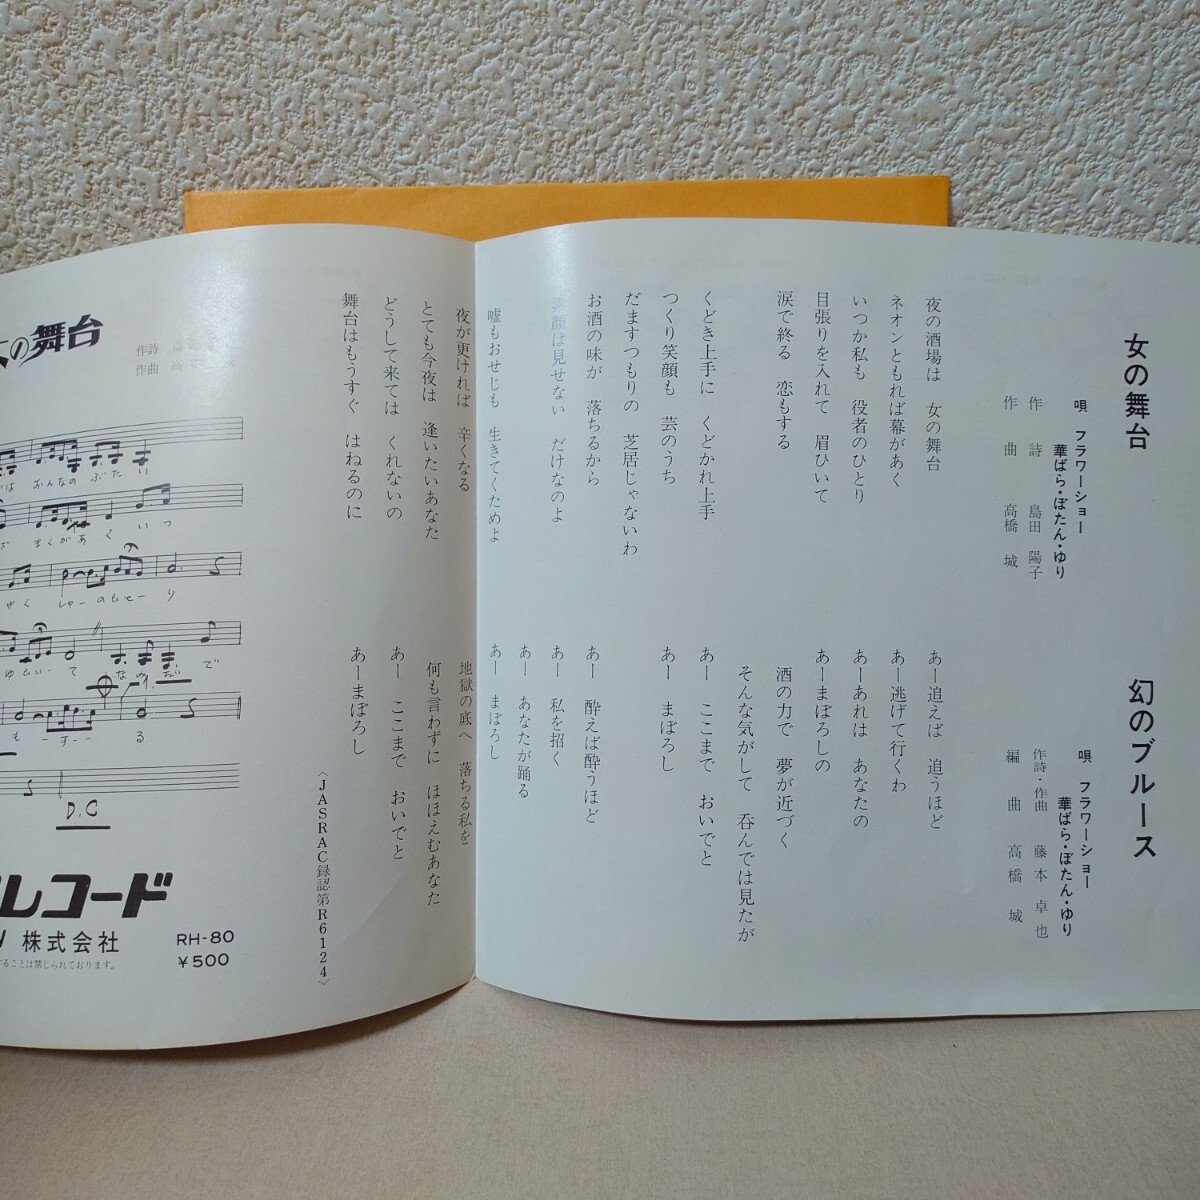 女の舞台
唄 フラワーショー
華ばら・ぼたん・ゆり
作詩 島田陽子
作曲 高橋城
夜の酒場は 女の舞台
ネオンともれば幕があく
いつか私も 役者のひとり
目張りを入れて 眉ひいて
涙で終る 恋もする
くどき上手に くどかれ上手
つくり笑顔も 芸のうち
だますつもりの 芝居じゃないわ
お酒の味が 落ちるから
素顔は見せない だけなのよ
嘘もおせじも 生きてくためよ
夜が更ければ 辛くなる
とても今夜は 逢いたいあなた
どうして来ては くれないの
舞台はもうすぐ はねるのに
幻のブルース
唄 フラワーショー
華ばら・ぼたん・ゆり
作詩・作曲 藤本卓也
編曲 高橋城
あー追えば 追うほど
あー逃げて行くわ
あーあれは あなたの
あーまぼろしの
酒の力で 夢が近づく
そんな気がして 呑んでは見たが
あー ここまで おいでと
あー まぼろし
あー 酔えば酔うほど
あー 私を招く
あー あなたが踊る
あー まぼろし
地獄の底へ 落ちる私を
何も言わずに ほほえむあなた
あー ここまで おいでと
あーまぼろし
〈JASRAC録認第R6124〉
の舞台
作詩
作曲 高
おんなの ぶたい
まくがあく いつ
しゃーのひとーり
なみだで
もーすーる
D.C
レコード
株式会社
RH-80
¥500
することは禁じられております。